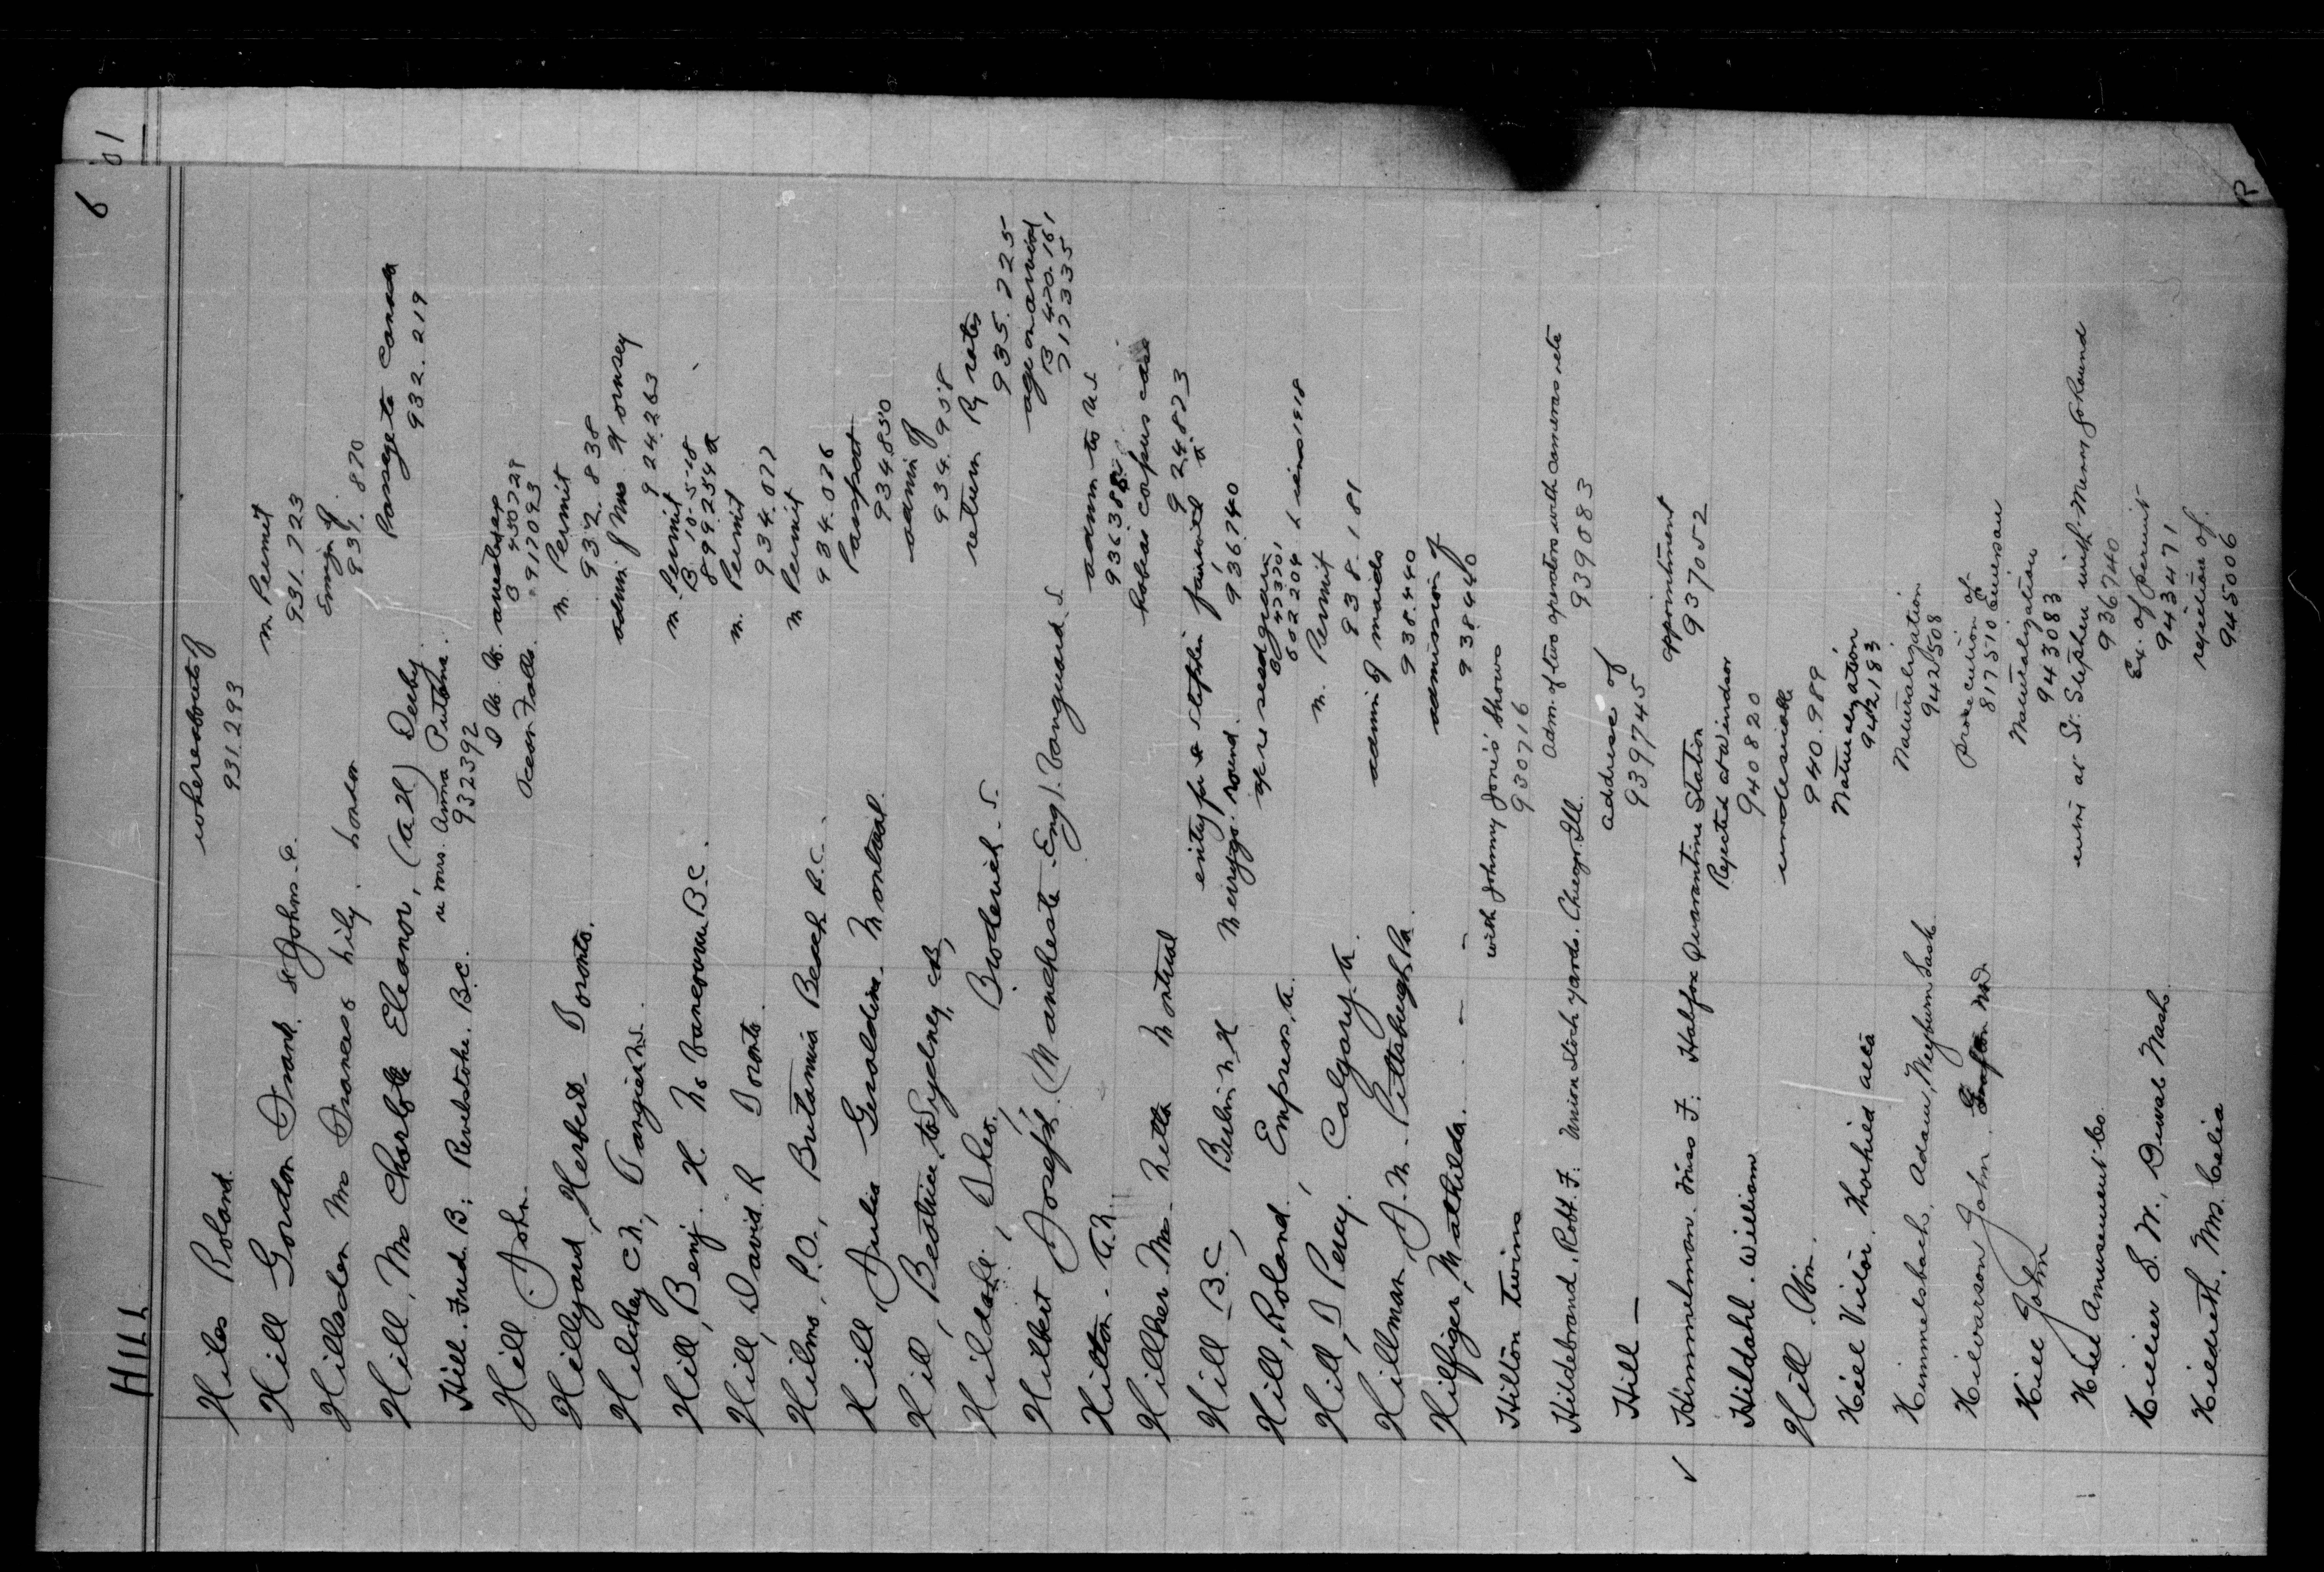 HILL
6
Hiles Roland. whereabouts of
931.293
Hill Gordon Frank. St Johns. P. m Permit
931.723
Hillsdon Mrs Frances Lily. London Emign of
931.870
Hill, Mrs Charlotte Eleanor, (A H) Derby. Passage to Canada
932.219
Hill. Fred. B; Revelstoke. B.C. u Mrs. Anna
932392
Hill. John. Ocean Falls.
917093
Hillyard, Herbert Toronto. m Permit
932.838
Hilchey C.N., Tangier N.S. admn of Mrs
924263
Hill, Benj. H. No Vancouver B.C. m. Permit
B 10-5-18
899254 a
Hill, David. R Toronto. m. Permit
934.077
Hilms, P.O., Britannia Beach B.C. m Permit
934.076
Hill, Julia Geraldine. Montreal. Passport
934850
Hill, Beatrice to Sydney, C.B, admn of
934.958
Hildale, Theo., Broderick. S. return Ry rates
935.725
Hilbert Joseph. (Manchester. Eng). Vanguard. S. age on arrival
B 420.161
717335
Hilton. A.N. admn to US
Hillker Mrs. Netta Montreal habeas corpus case
924873
Hill B.C., Berlin N H
Merrygo. round. 936740
Hill, Roland, Empress, A. re seed grain
Hill, D Percy. Calgary. A. m. Permit
938.181
Hillman, J. M. Pittsburgh Pa. admn of maids
938.440
Hilfiger, Mathilda. admission of
938440
Hilton Twins with Johnny Jones' Shows
930716
Hildebrand, Robt. F: Union Stock yards. Chicago, Ill. Adm. of two operators with cameras etc
939083
Hill — address of
939745
✓ Himmelman. Miss F: Halifax Quarantine Station appointment
937052
Hildahl. William Rejected at Windsor
940820
Hill. undesirable
940.989
Hill Victor. Naturalization
942183
Himmelsbach, Adam, Weyburn Sask. Naturalization
942508
Hilvarsson John. prosecution of
817510
Hill John Naturalization
943083
Hill Amusement Co. entry at St. Stephen with Merry go Round
936740
Hillier S. W., Duval Wash. Ex. of permit
943471
Hildreth, Mrs. Celia rejection of.
945006